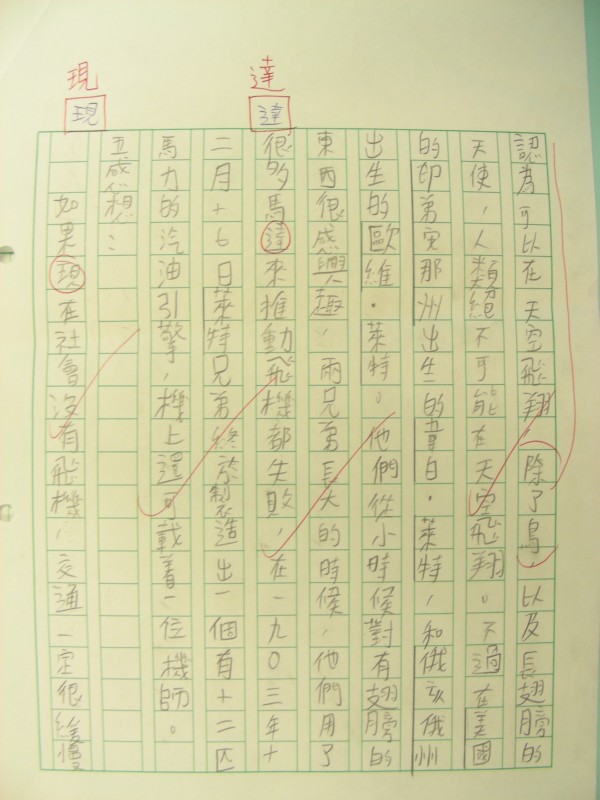 達
達
現
現
認為可以在天空飛翔除了鳥以及長翅膀的
天使，人類絕不可能在天空飛翔。不過在美國
的印弟安那州出生的韋白．萊特，和俄亥俄州
出生的歐維．萊特。他們從小時候對有翅膀的
東西很感興趣，兩兄弟長大的時候，他們用了
很多馬達來推動飛機都失敗，在一九０三年十
二月十七日萊特兄弟終於製造出一個有十二匹
馬力的汽油引擎，機上還可載著一位機師。
五感想：
如果現在社會沒有飛機，交通一定很緩慢